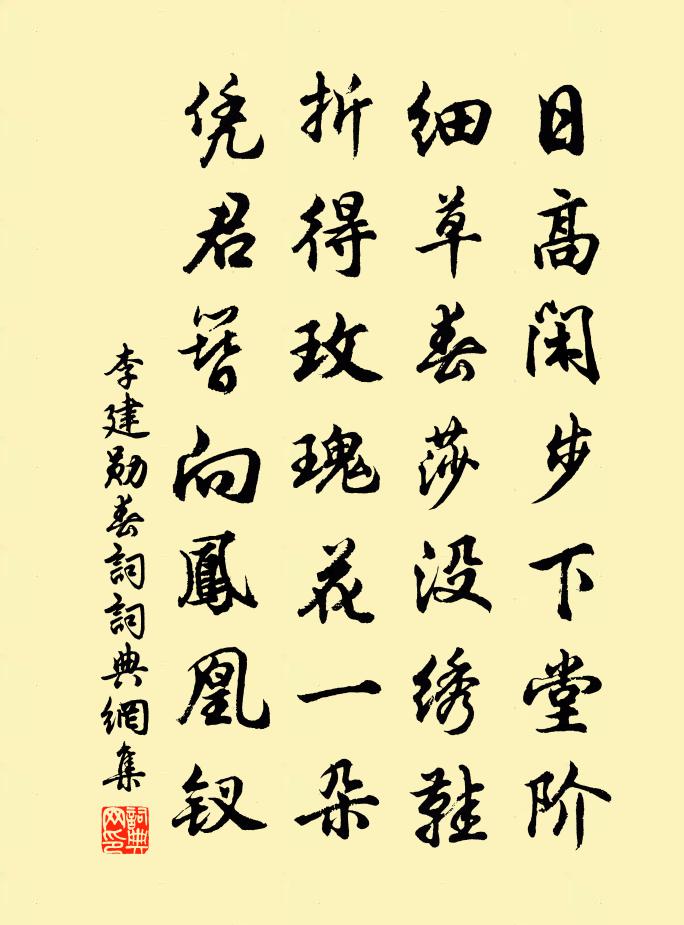 日高閑步下堂阶
细草春莎没绣鞋
折得玫瑰花一朵
凭君簪向鳳凰钗
李建勋春詞詞典網集
詞典网印